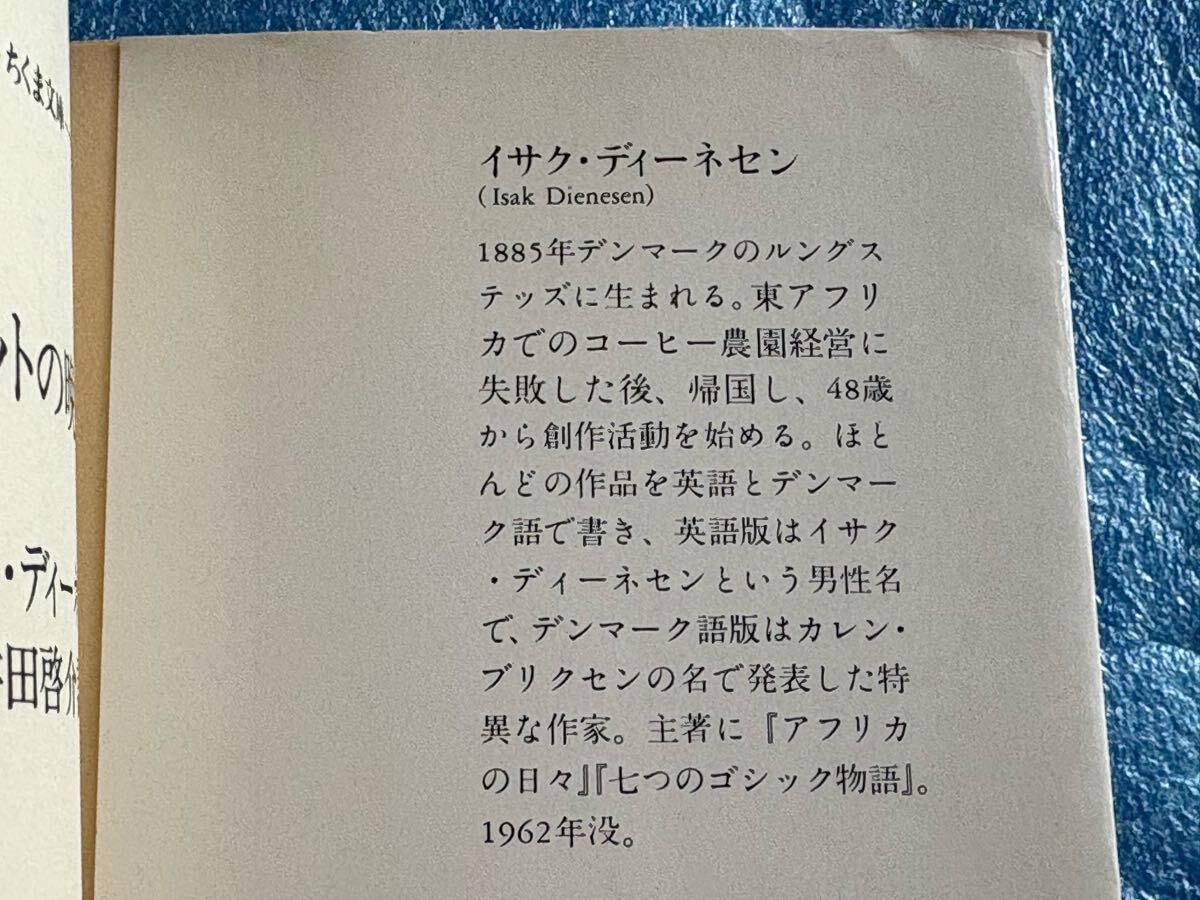 ちくま文庫
ットの晩
・ディーネ
田啓介
イサク・ディーネセン
(Isak Dienesen)
1885年デンマークのルングス
テッズに生まれる。東アフリ
カでのコーヒー農園経営に
失敗した後、帰国し、48歳
から創作活動を始める。ほと
んどの作品を英語とデンマー
ク語で書き、英語版はイサク
・ディーネセンという男性名
で、デンマーク語版はカレン・
ブリクセンの名で発表した特
異な作家。主著に『アフリカ
の日々』『七つのゴシック物語』。
1962年没。